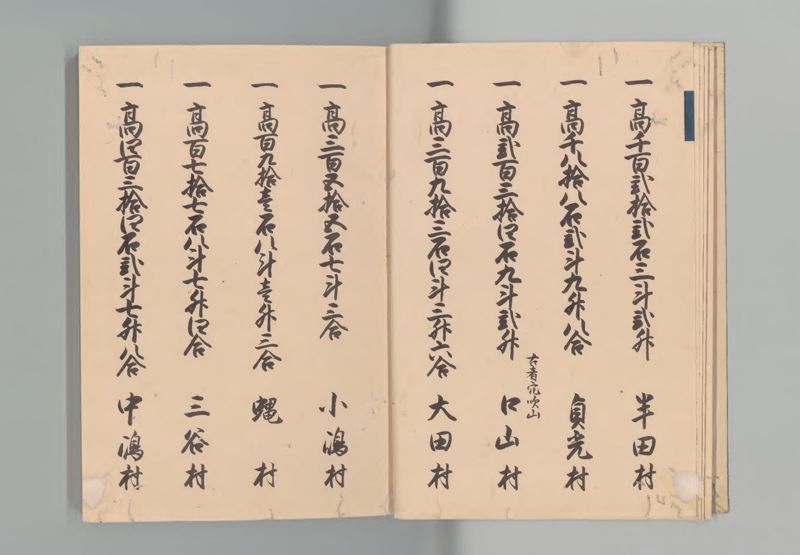 一高千百弐拾弐石三斗弐升 半田村
一高千八拾八石弐斗九升八合 貞光村
一高弐百三拾四石九斗弐升 口山村
古者宛吹山
一高三百九拾三石四斗三升六合 大田村
一高三百五拾五石七斗三合 小嶋村
一高百九拾壱石八斗壱升三合 蝿村
一高百七拾七石八斗七升四合 三谷村
一高四百三拾四石弐斗七升八合 中嶋村